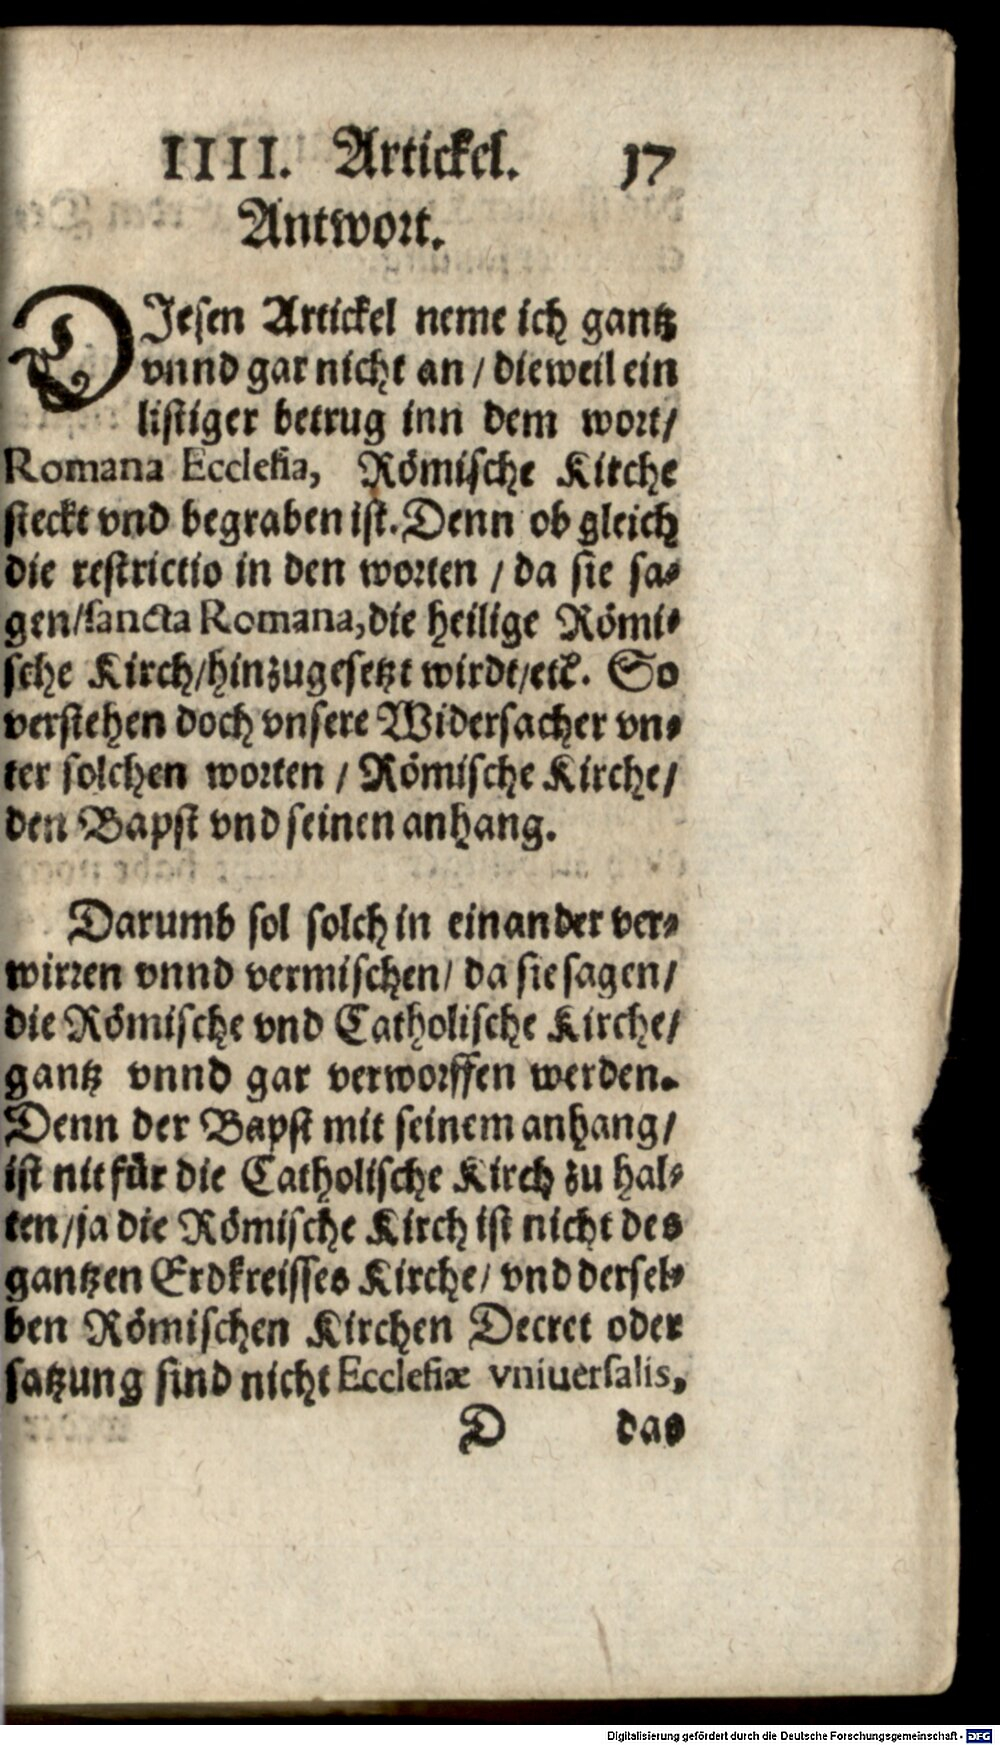 IIII. Artickel. 17
Antwort.
DIesen Artickel neme ich gantz
vnnd gar nicht an / dieweil ein
listiger betrug inn dem wort/
Romana Ecclesia, Römische Kirche
steckt vnd begraben ist. Denn ob gleich
die restrictio in den worten / da sie sa-
gen/sancta Romana, die heilige Römi-
sche Kirch/hinzugesetzt wirdt/etc. So
verstehen doch vnsere Widersacher vn-
ter solchen worten / Römische Kirche/
den Bapst vnd seinen anhang.
Darumb sol solch in einander ver-
wirren vnnd vermischen/ da sie sagen/
die Römische vnd Catholische Kirche/
gantz vnnd gar verworffen werden.
Denn der Bapst mit seinem anhang/
ist nit für die Catholische Kirch zu hal-
ten/ja die Römische Kirch ist nicht des
gantzen Erdkreisses Kirche/ vnd dersel-
ben Römischen Kirchen Decret oder
satzung sind nicht Ecclesiæ vniuersalis,
D das
Digitalisierung gefördert durch die Deutsche Forschungsgemeinschaft - DFG